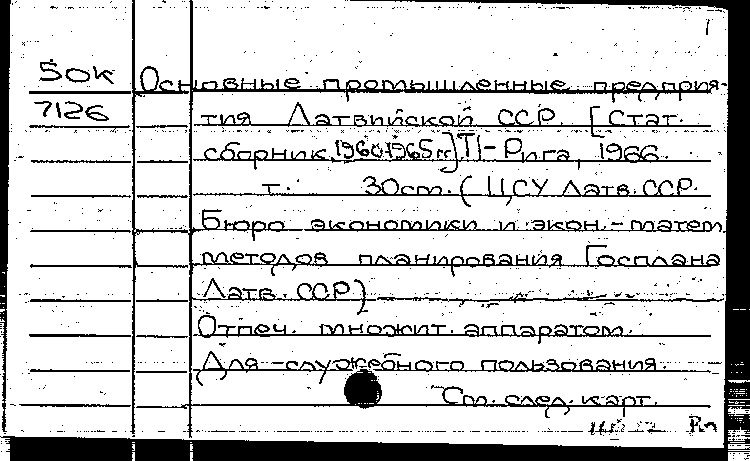 1
50К Основные промышленные предприя-
7126 тия Латвийской ССР. [Стат.
сборник, 1960, 1965 гг.] Т1- Рига, 1966.
т. 30см. (ЦСУ Латв. ССР.
Бюро экономики и экон.-матем.
методов планирования Госплана
Латв. ССР)
Отпеч. множит. аппаратом.
Для служебного пользования.
См. след. карт.
Рп